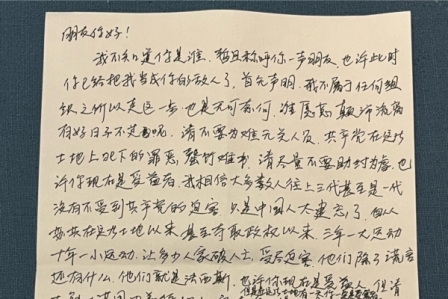 朋友你好!
我不知道你是谁,暂且称呼你一声朋友,也许此时
你已经把我当成你的敌人了,首先声明,我不属于任何组
织之所以走这一步也是无可奈何,谁愿意颠沛流离
有好日子不过呢,请不要为难无关人员,共产党在这片
土地上犯下的罪恶罄竹难书,请尽量不要助纣为虐,也
许你现在是受益者,我相信大多数人往上三代甚至是一代
没有不受到共产党的迫害,只是中国人太健忘了,自从
共在这片土地以来甚至夺取政权以来,三年一大运动
十年一小运动,让多少人家破人亡,受尽迫害,他们除了谎言
还有什么,他们就是法西斯,也许你现在是受益人,但请